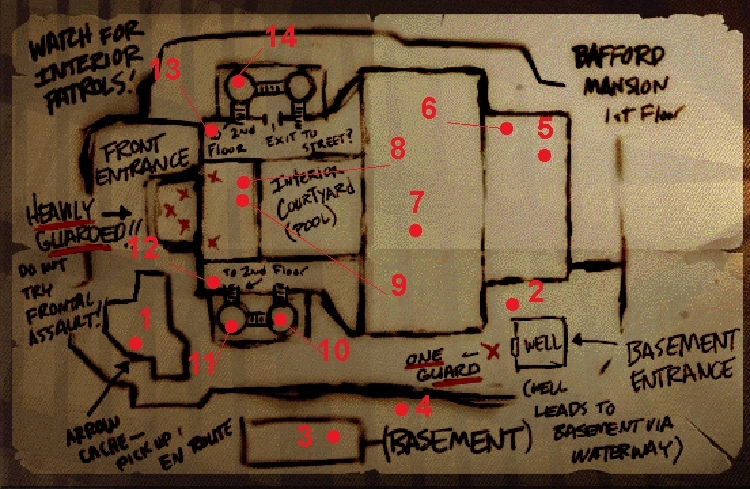 WATCH FOR
INTERIOR
PATROLS!
14
13
BAFFORD
MANSION
1st Floor
6
5
2nd
FLOOR
EXIT TO
STREET?
FRONT
ENTRANCE
8
INTERIOR
COURTYARD
(POOL)
7
HEAVILY
GUARDED!!
DO NOT
TRY
FRONTAL
ASSAULT!
12
TO 2nd FLOOR
9
2
1
11
10
ONE
GUARD
WELL
BASEMENT
ENTRANCE
(WELL
LEADS TO
BASEMENT VIA
WATERWAY)
ARROW
CACHE-
PICK UP!
EN ROUTE
4
3
(BASEMENT)